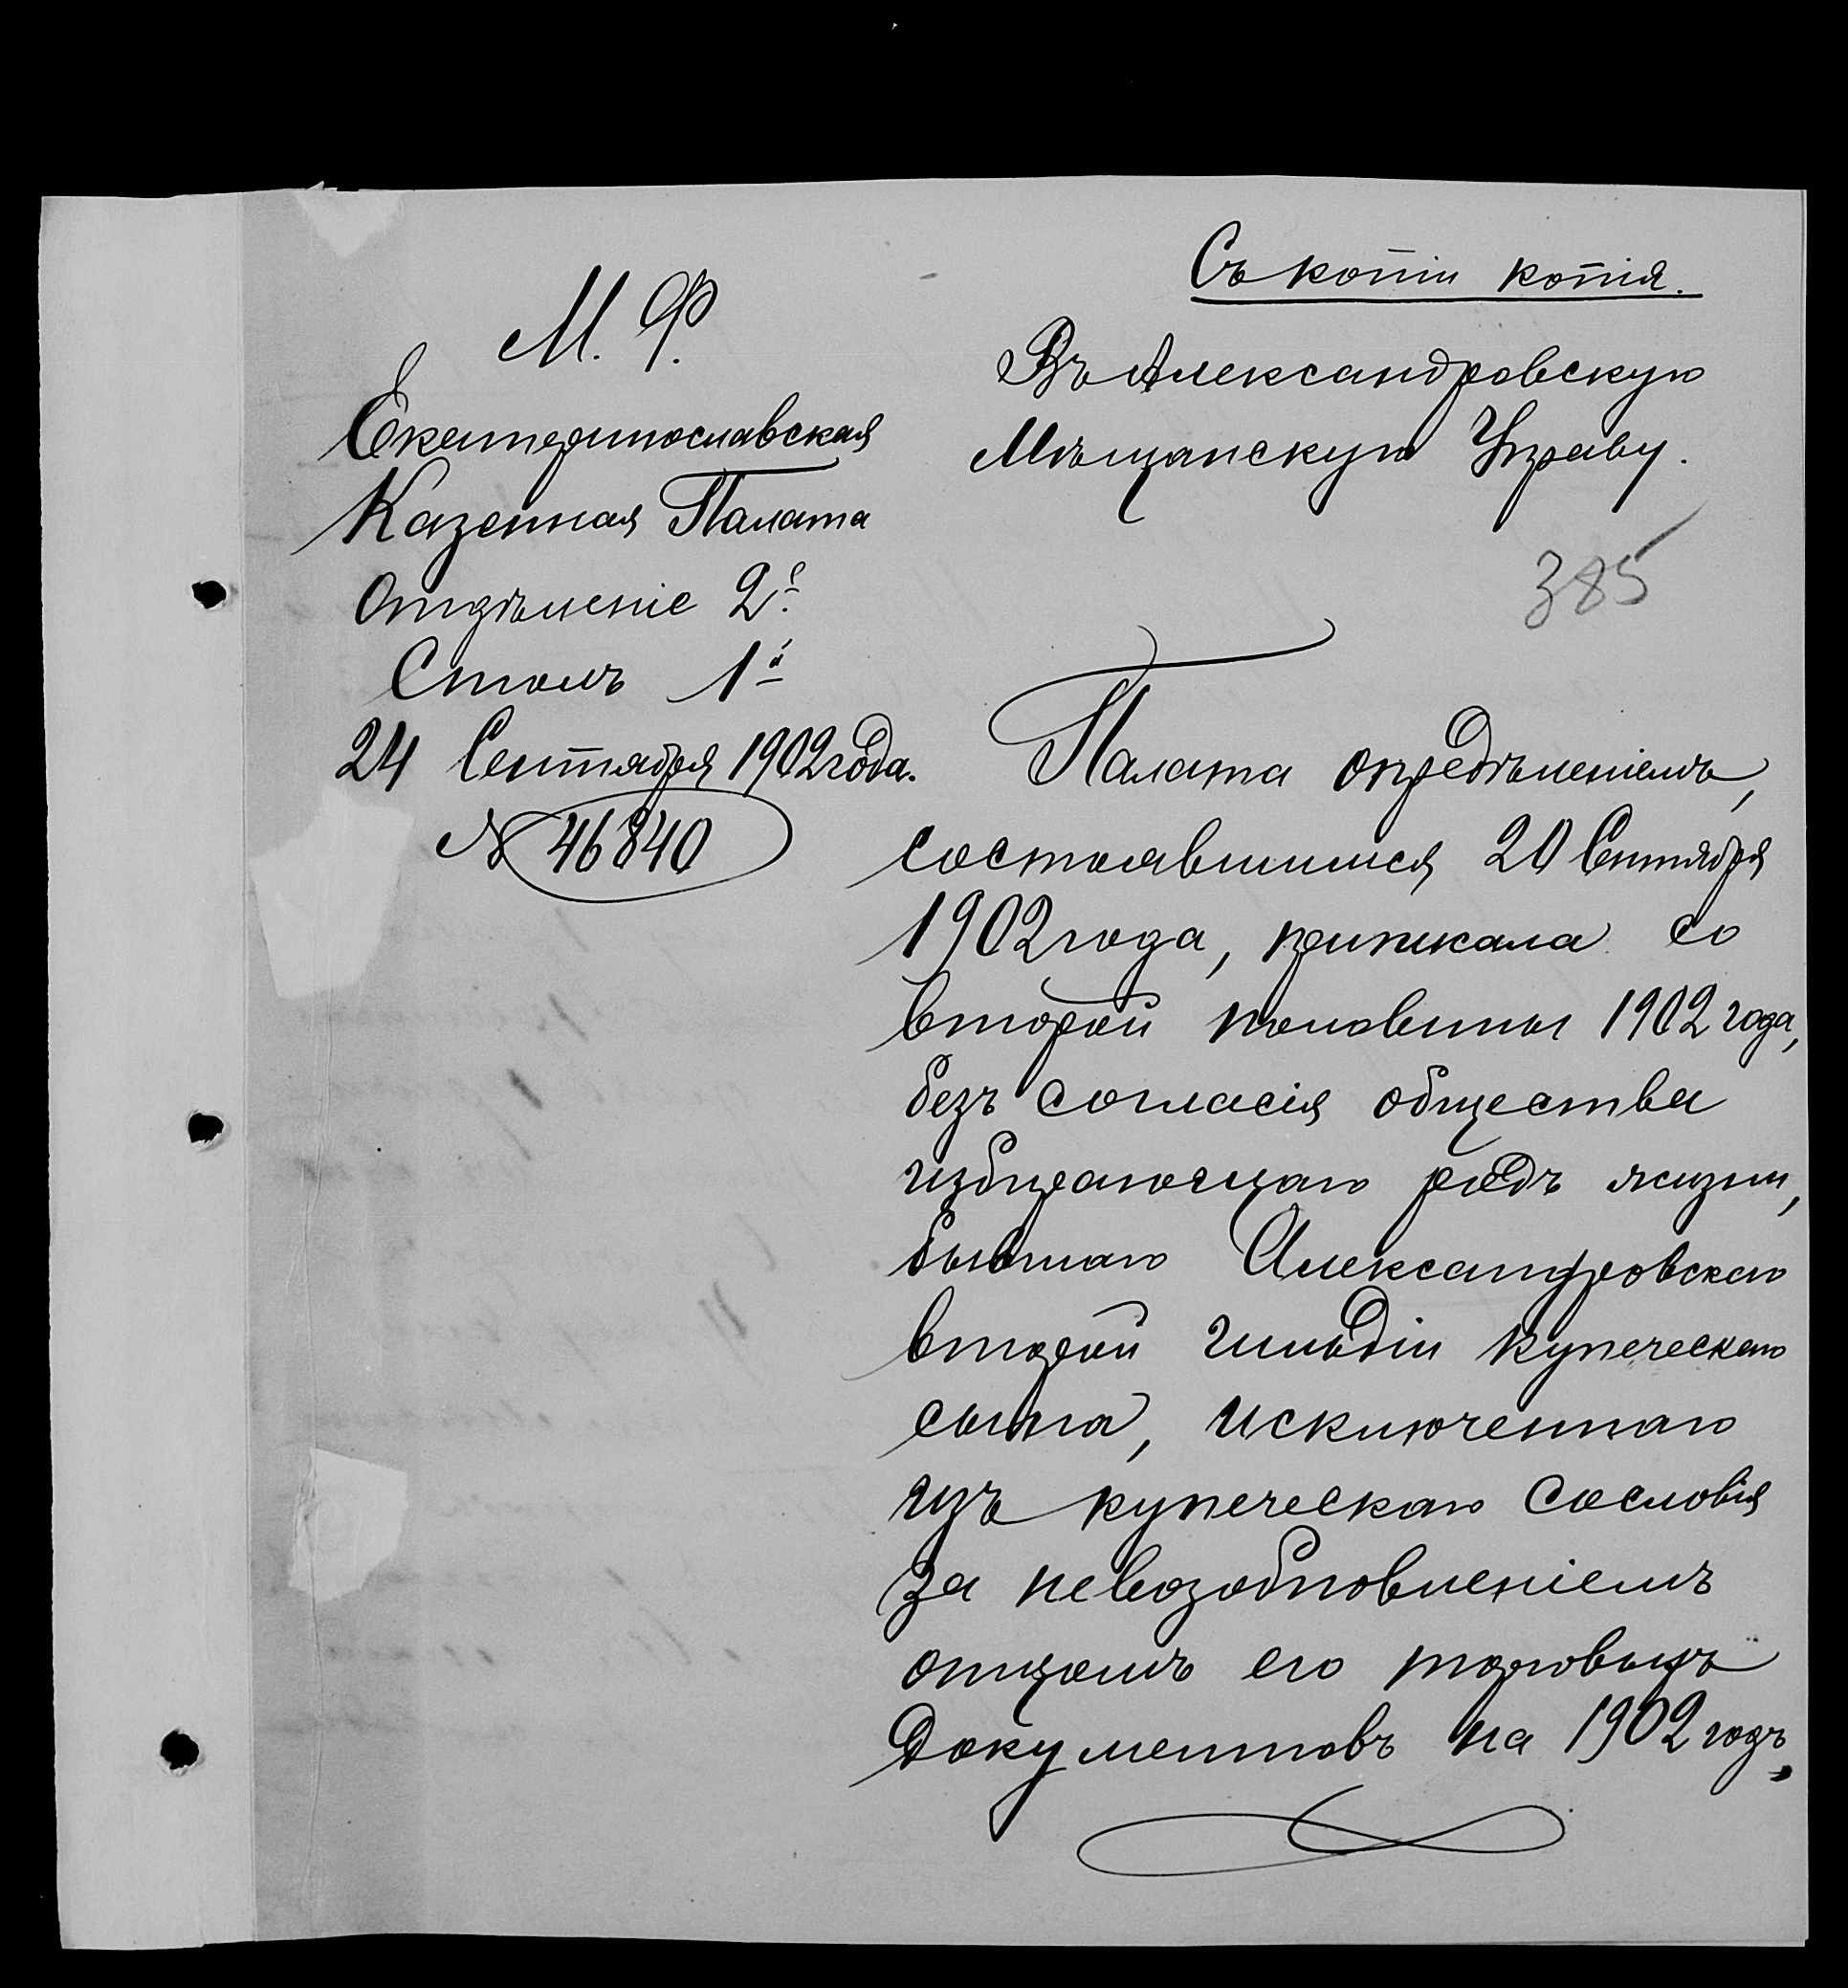 Съ копіи копія.
М. Ф.
Екатеринославская
Казенная Палата
Отдѣленіе 2е.
Столъ 1й
24 Сентября 1902 года.
№ 46840
Въ Александровскую
Мѣщанскую Управу.
385
Палата опредѣленіемъ,
состоявшимся 20 Сентября
1902 года, приписала со
второй половины 1902 года,
безъ согласія общества
избирающаго родъ жизни,
бывшаго Александровскаго
второй гильдіи купеческаго
сына, исключеннаго
изъ купеческаго сословія
за невозобновленіемъ
отцомъ его торговыхъ
документовъ на 1902 годъ,